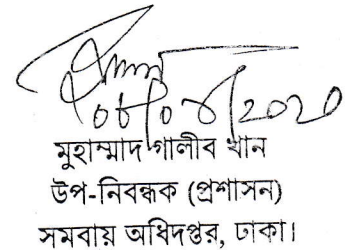 ০৮/০৪/২০২০
মুহাম্মাদ গালীব খান
উপ-নিবন্ধক (প্রশাসন)
সমবায় অধিদপ্তর, ঢাকা।